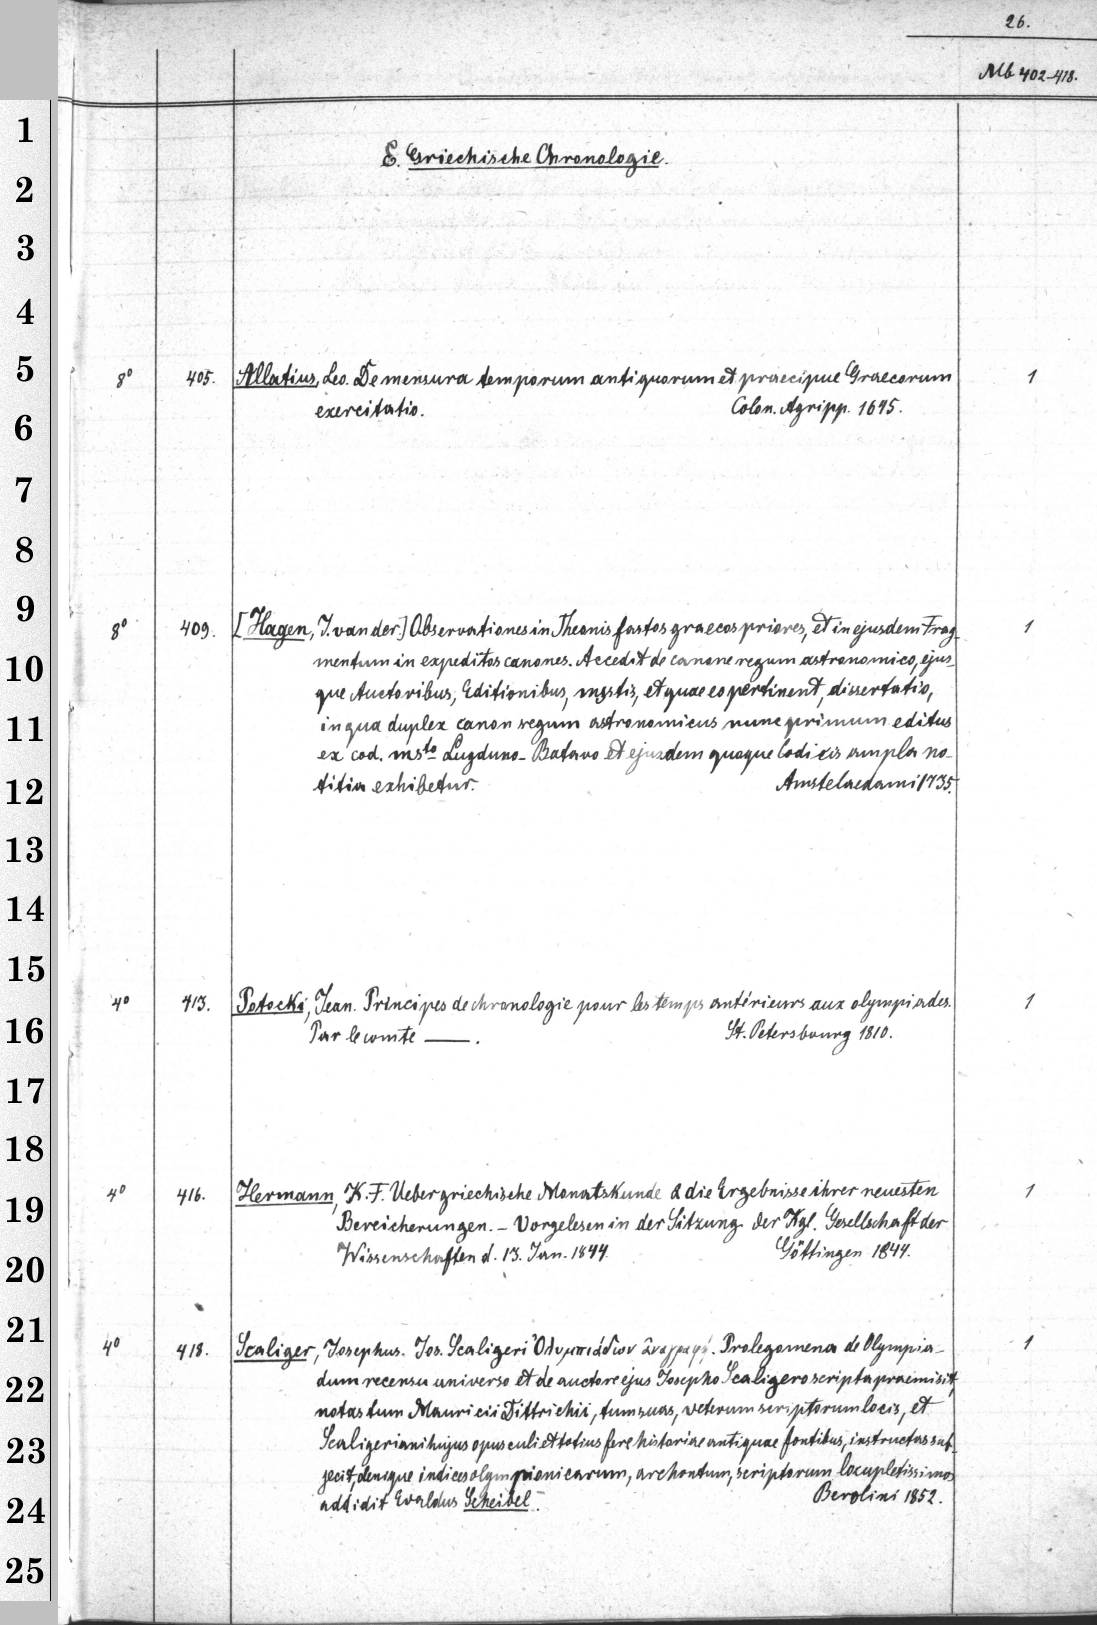 26.
Mb 402-418.
E. Griechische Chronologie.
8° 405. Allatius, Leo. De mensura temporum antiquorum et praecipue Graecorum 1
exercitatio. Colon. Agripp. 1645.
8° 409. [Hagen, J. van der] Observationes in Theonis fastos graecos priores, et in ejusdem Frag- 1
mentum in expeditos canones. Accedit de canone regum astronomico, ejus-
que Auctoribus, Editionibus, msstis, et quae eo pertinent, dissertatio,
in qua duplex canon regum astronomicus nunc primum editus
ex cod. msto Lugduno-Batavo et ejusdem quoque Codicis ampla no-
titia exhibetur. Amstelaedami 1735.
4° 413. Potocki, Jean. Principes de chronologie pour les temps antérieurs aux olympiades. 1
Par le comte —. St. Petersbourg 1810.
4° 416. Hermann, K. F. Ueber griechische Monatskunde & die Ergebnisse ihrer neuesten 1
Bereicherungen. – Vorgelesen in der Sitzung der Kgl. Gesellschaft der
Wissenschaften d. 13. Jan. 1844. Göttingen 1844.
4° 418. Scaliger, Josephus. Jos. Scaligeri Ὀλυμπιάδων ἀναγραφή. Prolegomena de Olympia- 1
dum recensu universo et de auctore ejus Josepho Scaligero scripta praemisit,
notas tum Mauricii Dittrichii, tum suas, veterum scriptorum locis, et
Scaligeriani hujus opusculi et totius fere historiae antiquae fontibus, instructas sub-
jecit, denique indices olympionicarum, archontum, scriptorum locupletissimos
addidit Evaldus Scheibel. Berolini 1852.
1
2
3
4
5
6
7
8
9
10
11
12
13
14
15
16
17
18
19
20
21
22
23
24
25